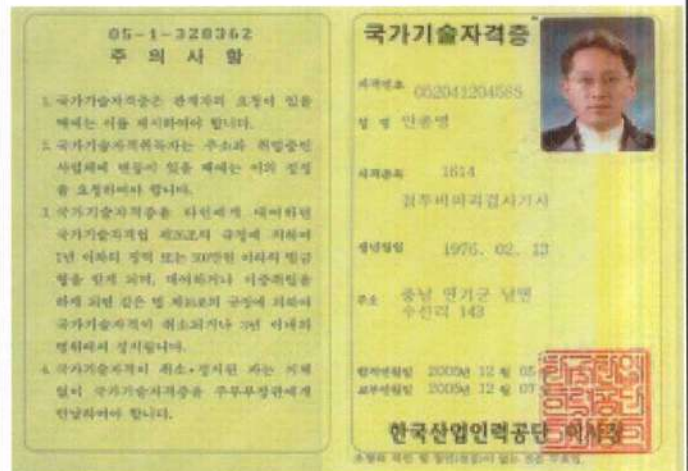 05-1-328362
주 의 사 항
1. 국가기술자격증은 관계자의 요청이 있을
때에는 이를 제시하여야 합니다.
2. 국가기술자격취득자는 주소와 취업중인
사업체에 변동이 있을 때에는 이의 정정
을 요청하여야 합니다.
3. 국가기술자격증을 타인에게 대여하면
국가기술자격법 제26조의 규정에 의하여
1년 이하의 징역 또는 500만원 이하의 벌금
형을 받게 되며, 대여하거나 이중취업을
하게 되면 같은 법 의 규정에 의하여
국가기술자격이 취소되거나 3년 이내의
범위에서 정지됩니다.
4. 국가기술자격이 취소·정지된 자는 지체
없이 국가기술자격증을 주무부장관에게
반납하여야 합니다.
국가기술자격증
자격번호 05204120458S
성 명 안종명
자격종목 1614
침투비파괴검사기사
생년월일 1976. 02. 13
주소 충남 연기군 남면
수산리 143
합격연월일 2005년 12 월 05
교부연월일 2005년 12 월 07
한국산업인력공단 이사장